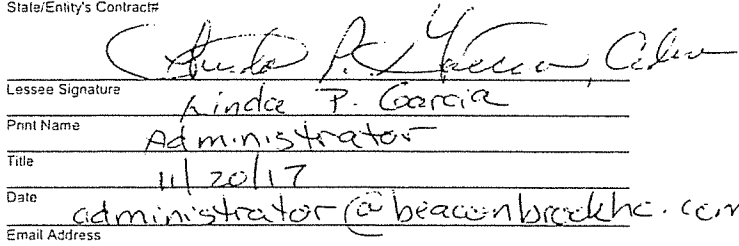 State/Entity's Contract#
Linda P. Garcia, Admn
Lessee Signature
Linda P. Garcia
Print Name
Administrator
Title
11/20/17
Date
administrator@beaconbrookhc.com
Email Address